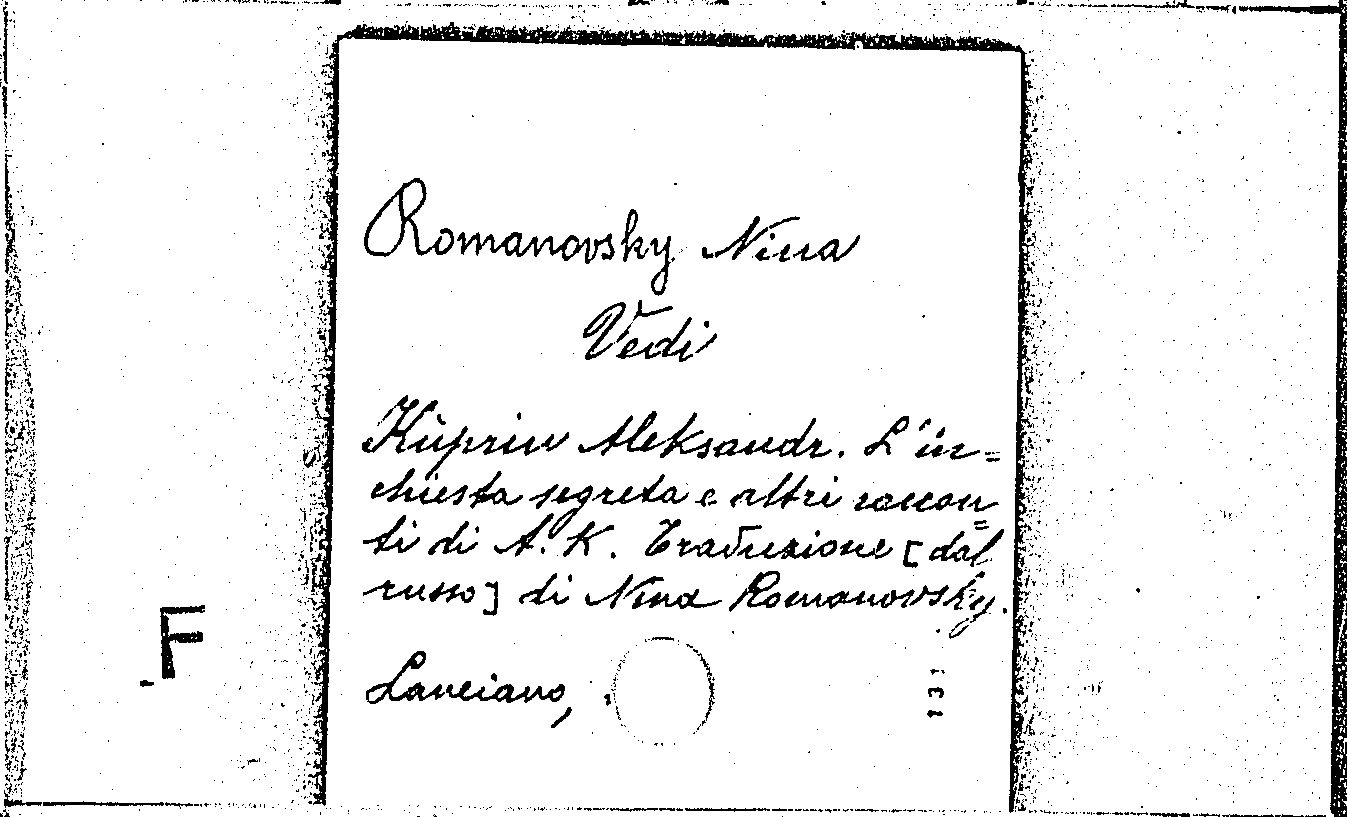 Romanovsky Nina
Vedi
Kùprin Aleksandr. L'in=
chiesta segreta e altri raccon=
ti di A. K. Traduzione [dal
russo] di Nina Romanovsky.
F
Lanciano,